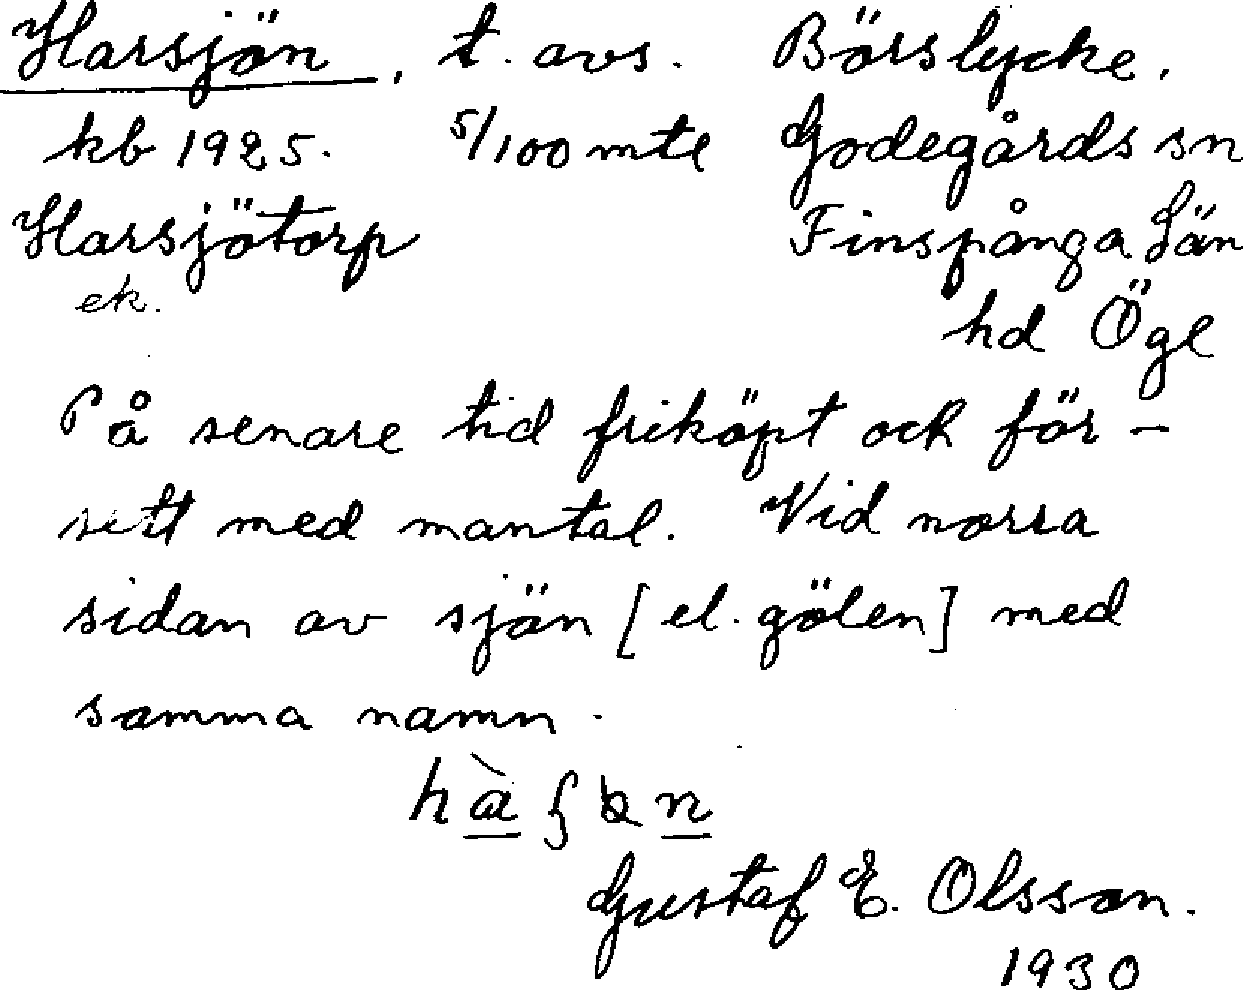 Harsjön, t. avs. Börslycke,
kb 1925. 5/100 mtl Godegårds sn
Harsjötorp Finspånga Län
ek. hd Ögl
På senare tid friköpt och för-
sett med mantal. Vid norra
sidan av sjön [el. gölen] med
samma namn.
Gustaf E. Olsson.
1930